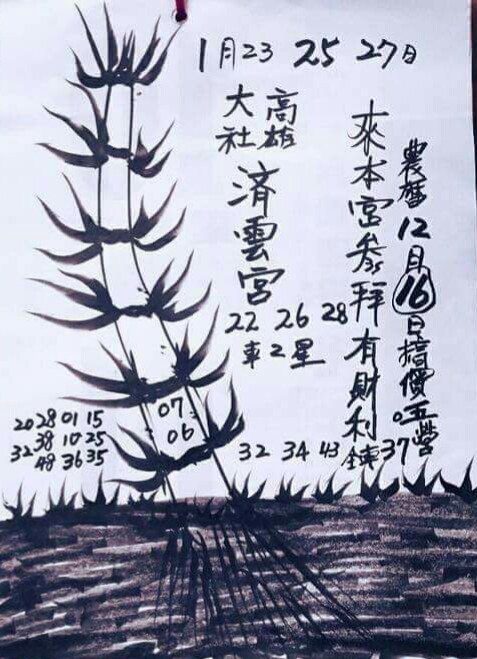 1月23 25 27日
高雄
大社
済雲宮
來本宮參拜有財利錢
農曆12月16日犒賞五營
22 26 28
車之星
07
06
20 28 01 15
38 10 25
32 48 36 35
32 34 43 37